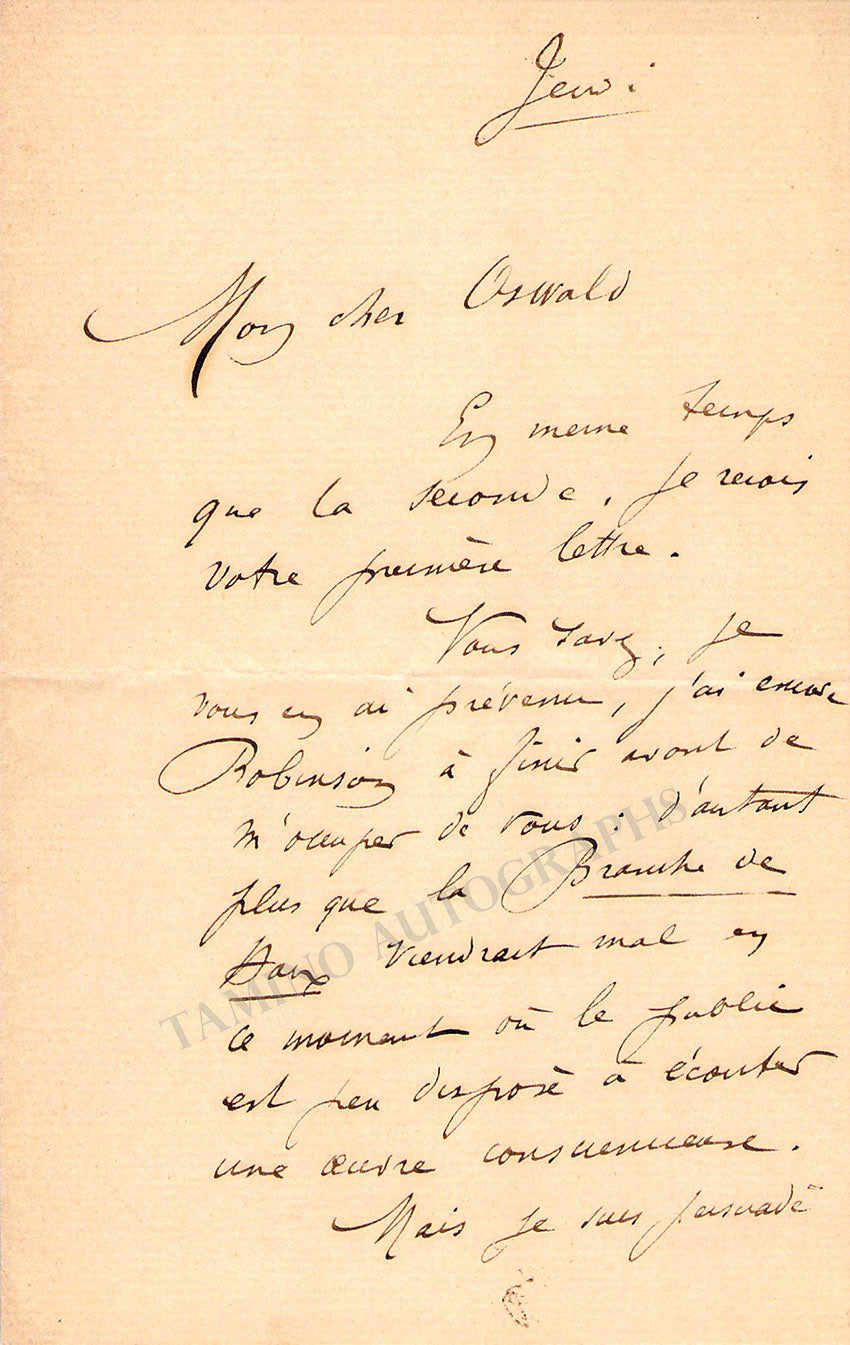 Jeudi
Mon cher Oswald
En meme temps
que la seconde, je reçois
votre première lettre.
Vous savez, je
vous en ai prévenu, j'ai encore
Robinson à finir avant de
m'occuper de vous : d'autant
plus que la Branche de
viendrait mal en
ce moment où le public
est peu disposé à écouter
une œuvre consciencieuse.
Mais je suis persuadé
TAMINO AUTOGRAPHS